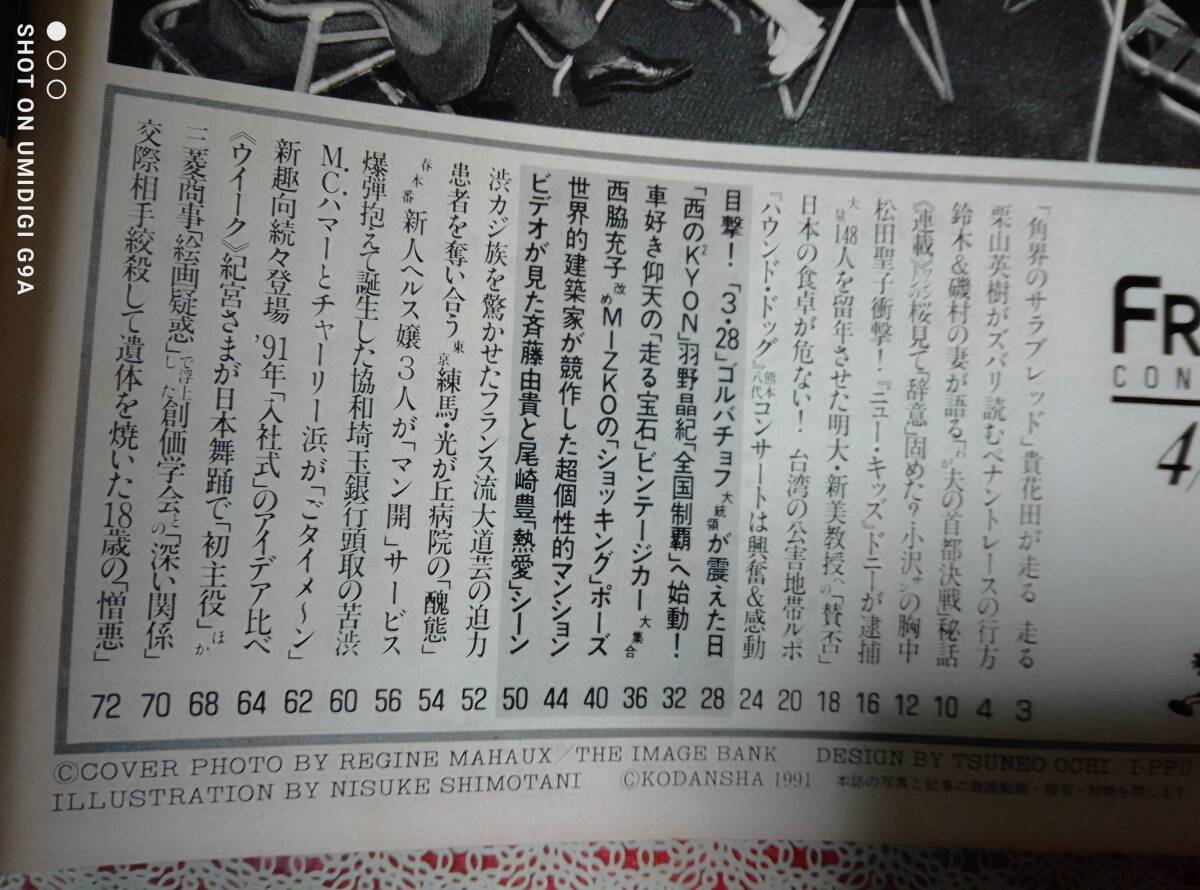 SHOT ON UMIDIGI G9A
FR
CON
4/
「角界のサラブレッド」貴花田が走る 走る 3
栗山英樹がズバリ読むペナントレースの行方 4
鈴木&磯村の妻が語る「わが夫の首都決戦」秘話 10
《連載》桜見て「辞意」固めた?小沢サンの胸中 12
松田聖子衝撃!『ニュー・キッズ』ドニーが逮捕 16
大量148人を留年させた明大・新美教授への「賛否」 18
日本の食卓が危ない! 台湾の公害地帯ルポ 20
『ハウンド・ドッグ』熊本八代コンサートは興奮&感動 24
目撃!「3・28」ゴルバチョフ大統領が震えた日 28
「西のKYON2」羽野晶紀「全国制覇」へ始動! 32
車好き仰天の「走る宝石」ビンテージカー大集合 36
西脇充子改めMIZKOの「ショッキング」ポーズ 40
世界的建築家が競作した超個性的マンション 44
ビデオが見た斉藤由貴と尾崎豊「熱愛」シーン 50
渋カジ族を驚かせたフランス流大道芸の迫力 52
患者を奪い合う東京練馬・光が丘病院の「醜態」 54
春本番新人ヘルス嬢3人が「マン開」サービス 56
爆弾抱えて誕生した協和埼玉銀行頭取の苦渋 60
M.C.ハマーとチャーリー浜が「ごタイメ〜ン」 62
新趣向続々登場 '91年「入社式」のアイデア比べ 64
《ウイーク》紀宮さまが日本舞踊で「初主役」ほか 68
三菱商事「絵画疑惑」で浮上した創価学会との「深い関係」 70
交際相手絞殺して遺体を焼いた18歳の「憎悪」 72
©COVER PHOTO BY REGINE MAHAUX/THE IMAGE BANK DESIGN BY TSUNEO OCHI/I-PPU
ILLUSTRATION BY NISUKE SHIMOTANI ©KODANSHA 1991 本誌の写真と記事の無断転載・複写・放映を禁じます